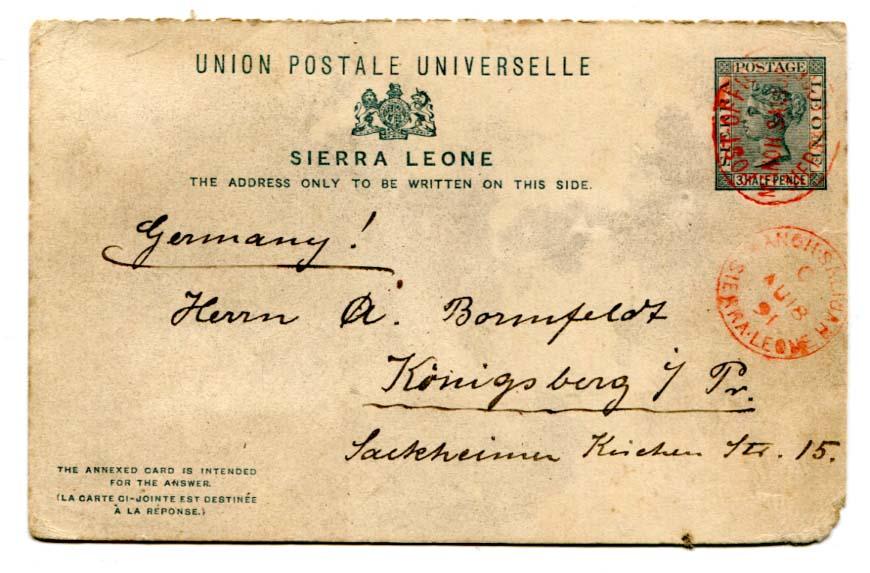 UNION POSTALE UNIVERSELLE
SIERRA LEONE
THE ADDRESS ONLY TO BE WRITTEN ON THIS SIDE.
POSTAGE
SIERRA
LEONE
3 HALFPENCE
POST OFFICE
C
AU 18
91
SIERRA·LEONE
Germany!
Herrn A. Bornfeldt
Königsberg i/ Pr.
Sackheimer Kirchen Str. 15.
THE ANNEXED CARD IS INTENDED
FOR THE ANSWER.
(LA CARTE CI-JOINTE EST DESTINÉE
À LA RÉPONSE.)